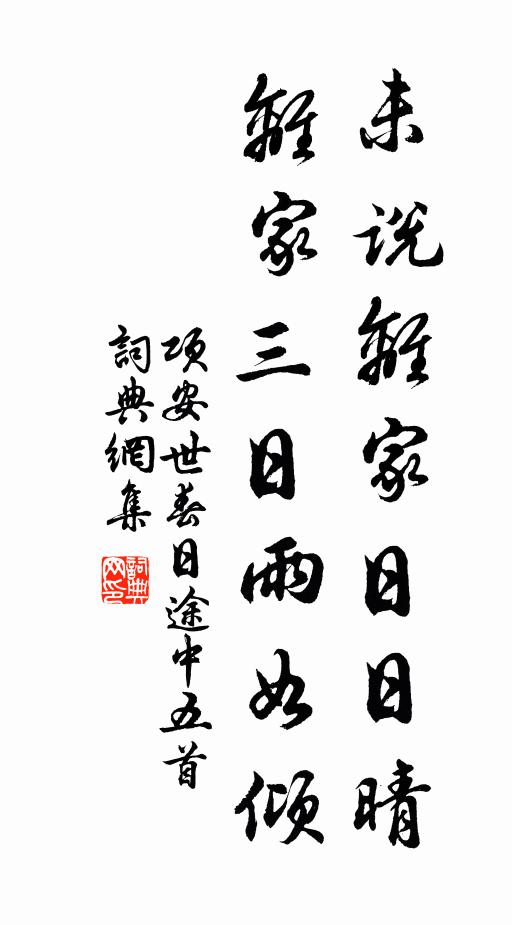 未說離家日日晴
離家三日雨如傾
項安世春日途中五首
詞典網集
詞典網印